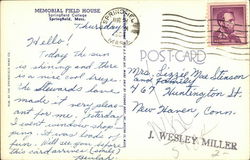 MEMORIAL FIELD HOUSE
Springfield College
Springfield, Mass.
Thursday
Hello!
Today the sun
is shining and there
is a nice cool breeze.
The Stewards have
made it very pleas
ant for me. Yesterday
I went window shop-
ping. It was lots of
fun. Will see you before
this card arrives.
Beulah
POST CARD
Mrs. Lizzie Mae Stinson
and family
467 Huntington St.
New Haven, Conn.
J. WESLEY MILLER